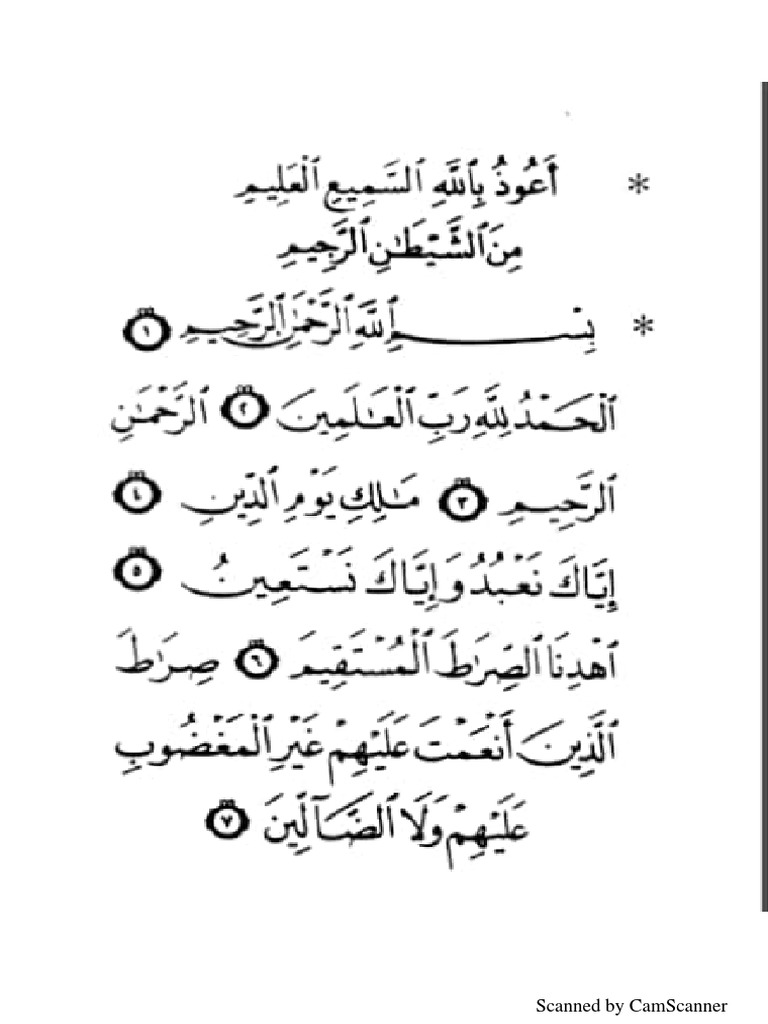 * أَعُوذُ بِٱللَّهِ ٱلسَّمِيعِ ٱلْعَلِيمِ
مِنَ ٱلشَّيْطَٰنِ ٱلرَّجِيمِ
* بِسْمِ ٱللَّهِ ٱلرَّحْمَٰنِ ٱلرَّحِيمِ ١
ٱلْحَمْدُ لِلَّهِ رَبِّ ٱلْعَٰلَمِينَ ٢ ٱلرَّحْمَٰنِ
ٱلرَّحِيمِ ٣ مَٰلِكِ يَوْمِ ٱلدِّينِ ٤
إِيَّاكَ نَعْبُدُ وَإِيَّاكَ نَسْتَعِينُ ٥
ٱهْدِنَا ٱلصِّرَٰطَ ٱلْمُسْتَقِيمَ ٦ صِرَٰطَ
ٱلَّذِينَ أَنْعَمْتَ عَلَيْهِمْ غَيْرِ ٱلْمَغْضُوبِ
عَلَيْهِمْ وَلَا ٱلضَّآلِّينَ ٧
Scanned by CamScanner